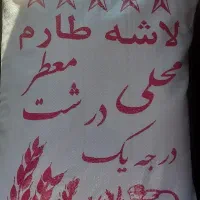 لاشه طارم
معطر
محلی
درشت
درجه یک